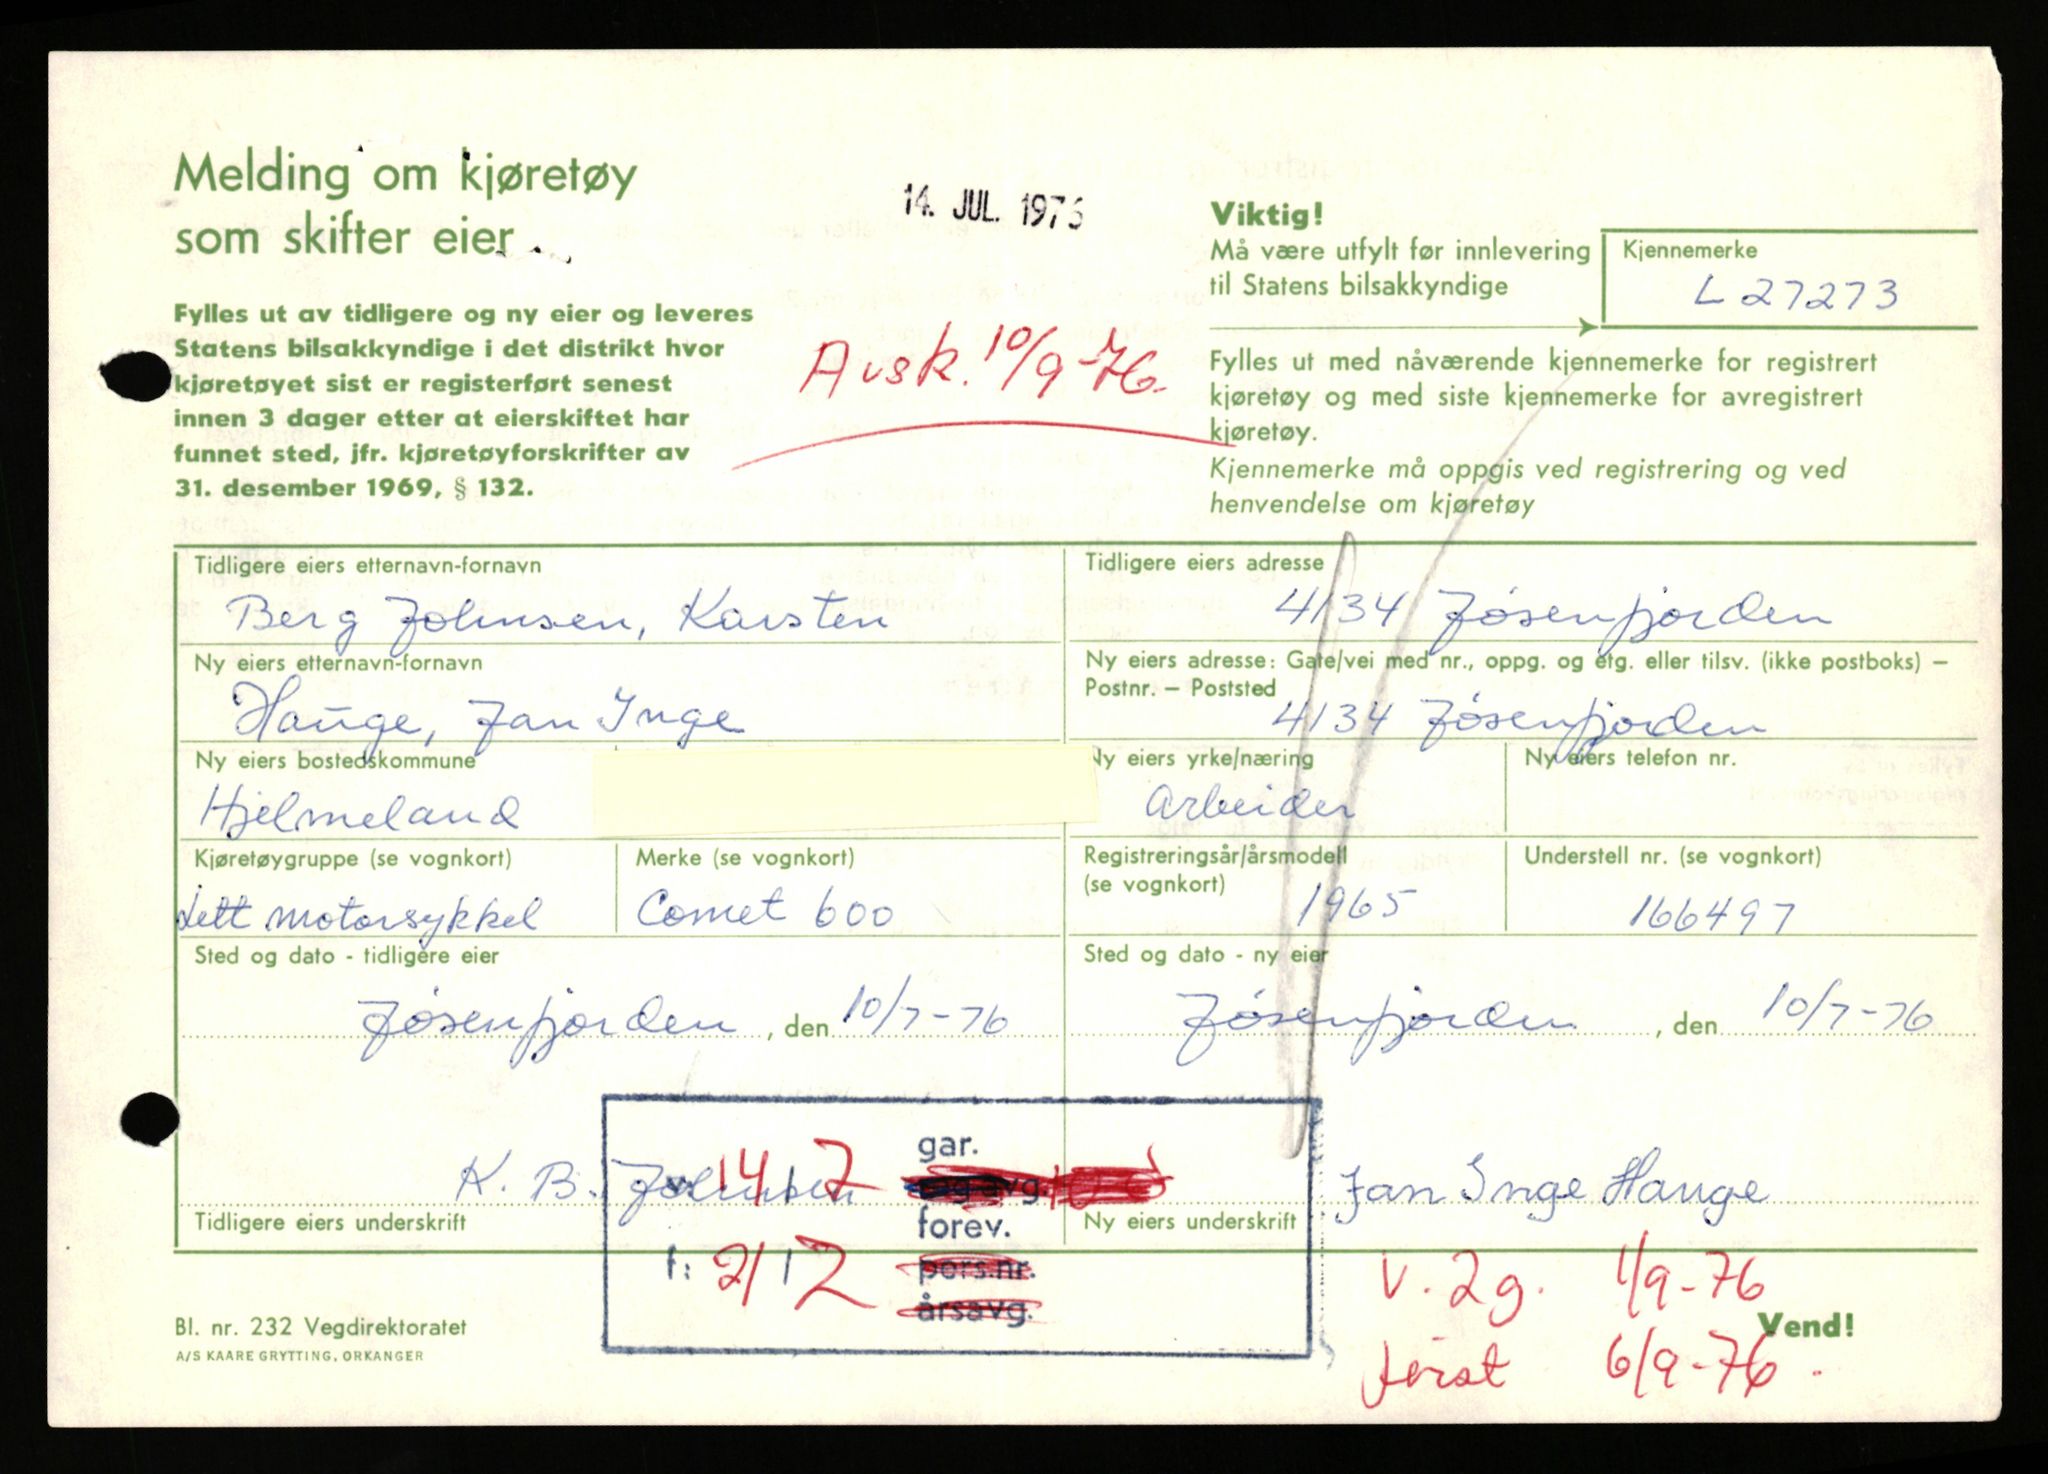 Melding om kjøretøy
som skifter eier
14. JUL. 1976
Viktig!
Må være utfylt før innlevering
til Statens bilsakkyndige
Kjennemerke
L 27273
Fylles ut av tidligere og ny eier og leveres
Statens bilsakkyndige i det distrikt hvor
kjøretøyet sist er registerført senest
innen 3 dager etter at eierskiftet har
funnet sted, jfr. kjøretøyforskrifter av
31. desember 1969, § 132.
Avsk. 10/9-76.
Fylles ut med nåværende kjennemerke for registrert
kjøretøy og med siste kjennemerke for avregistrert
kjøretøy.
Kjennemerke må oppgis ved registrering og ved
henvendelse om kjøretøy
Tidligere eiers etternavn-fornavn
Berg Johnsen, Karsten
Tidligere eiers adresse
4134 Jøsenfjorden
Ny eiers etternavn-fornavn
Hauge, Jan Inge
Ny eiers adresse: Gate/vei med nr., oppg. og etg. eller tilsv. (ikke postboks) –
Postnr. – Poststed
4134 Jøsenfjorden
Ny eiers bostedskommune
Hjelmeland
Ny eiers yrke/næring
Arbeider
Ny eiers telefon nr.
Kjøretøygruppe (se vognkort)
Lett motorsykkel
Merke (se vognkort)
Comet 600
Registreringsår/årsmodell
(se vognkort)
1965
Understell nr. (se vognkort)
166497
Sted og dato - tidligere eier
Jøsenfjorden, den 10/7-76
Sted og dato - ny eier
Jøsenfjorden, den 10/7-76
K. B. Johnsen
Tidligere eiers underskrift
Jan Inge Hauge
Ny eiers underskrift
14 7
gar.
forev.
f: 2/12
pers.nr.
årsavg.
V. 2 g. 1/9-76
først 6/9-76.
Bl. nr. 232 Vegdirektoratet
A/S KAARE GRYTTING, ORKANGER
Vend!